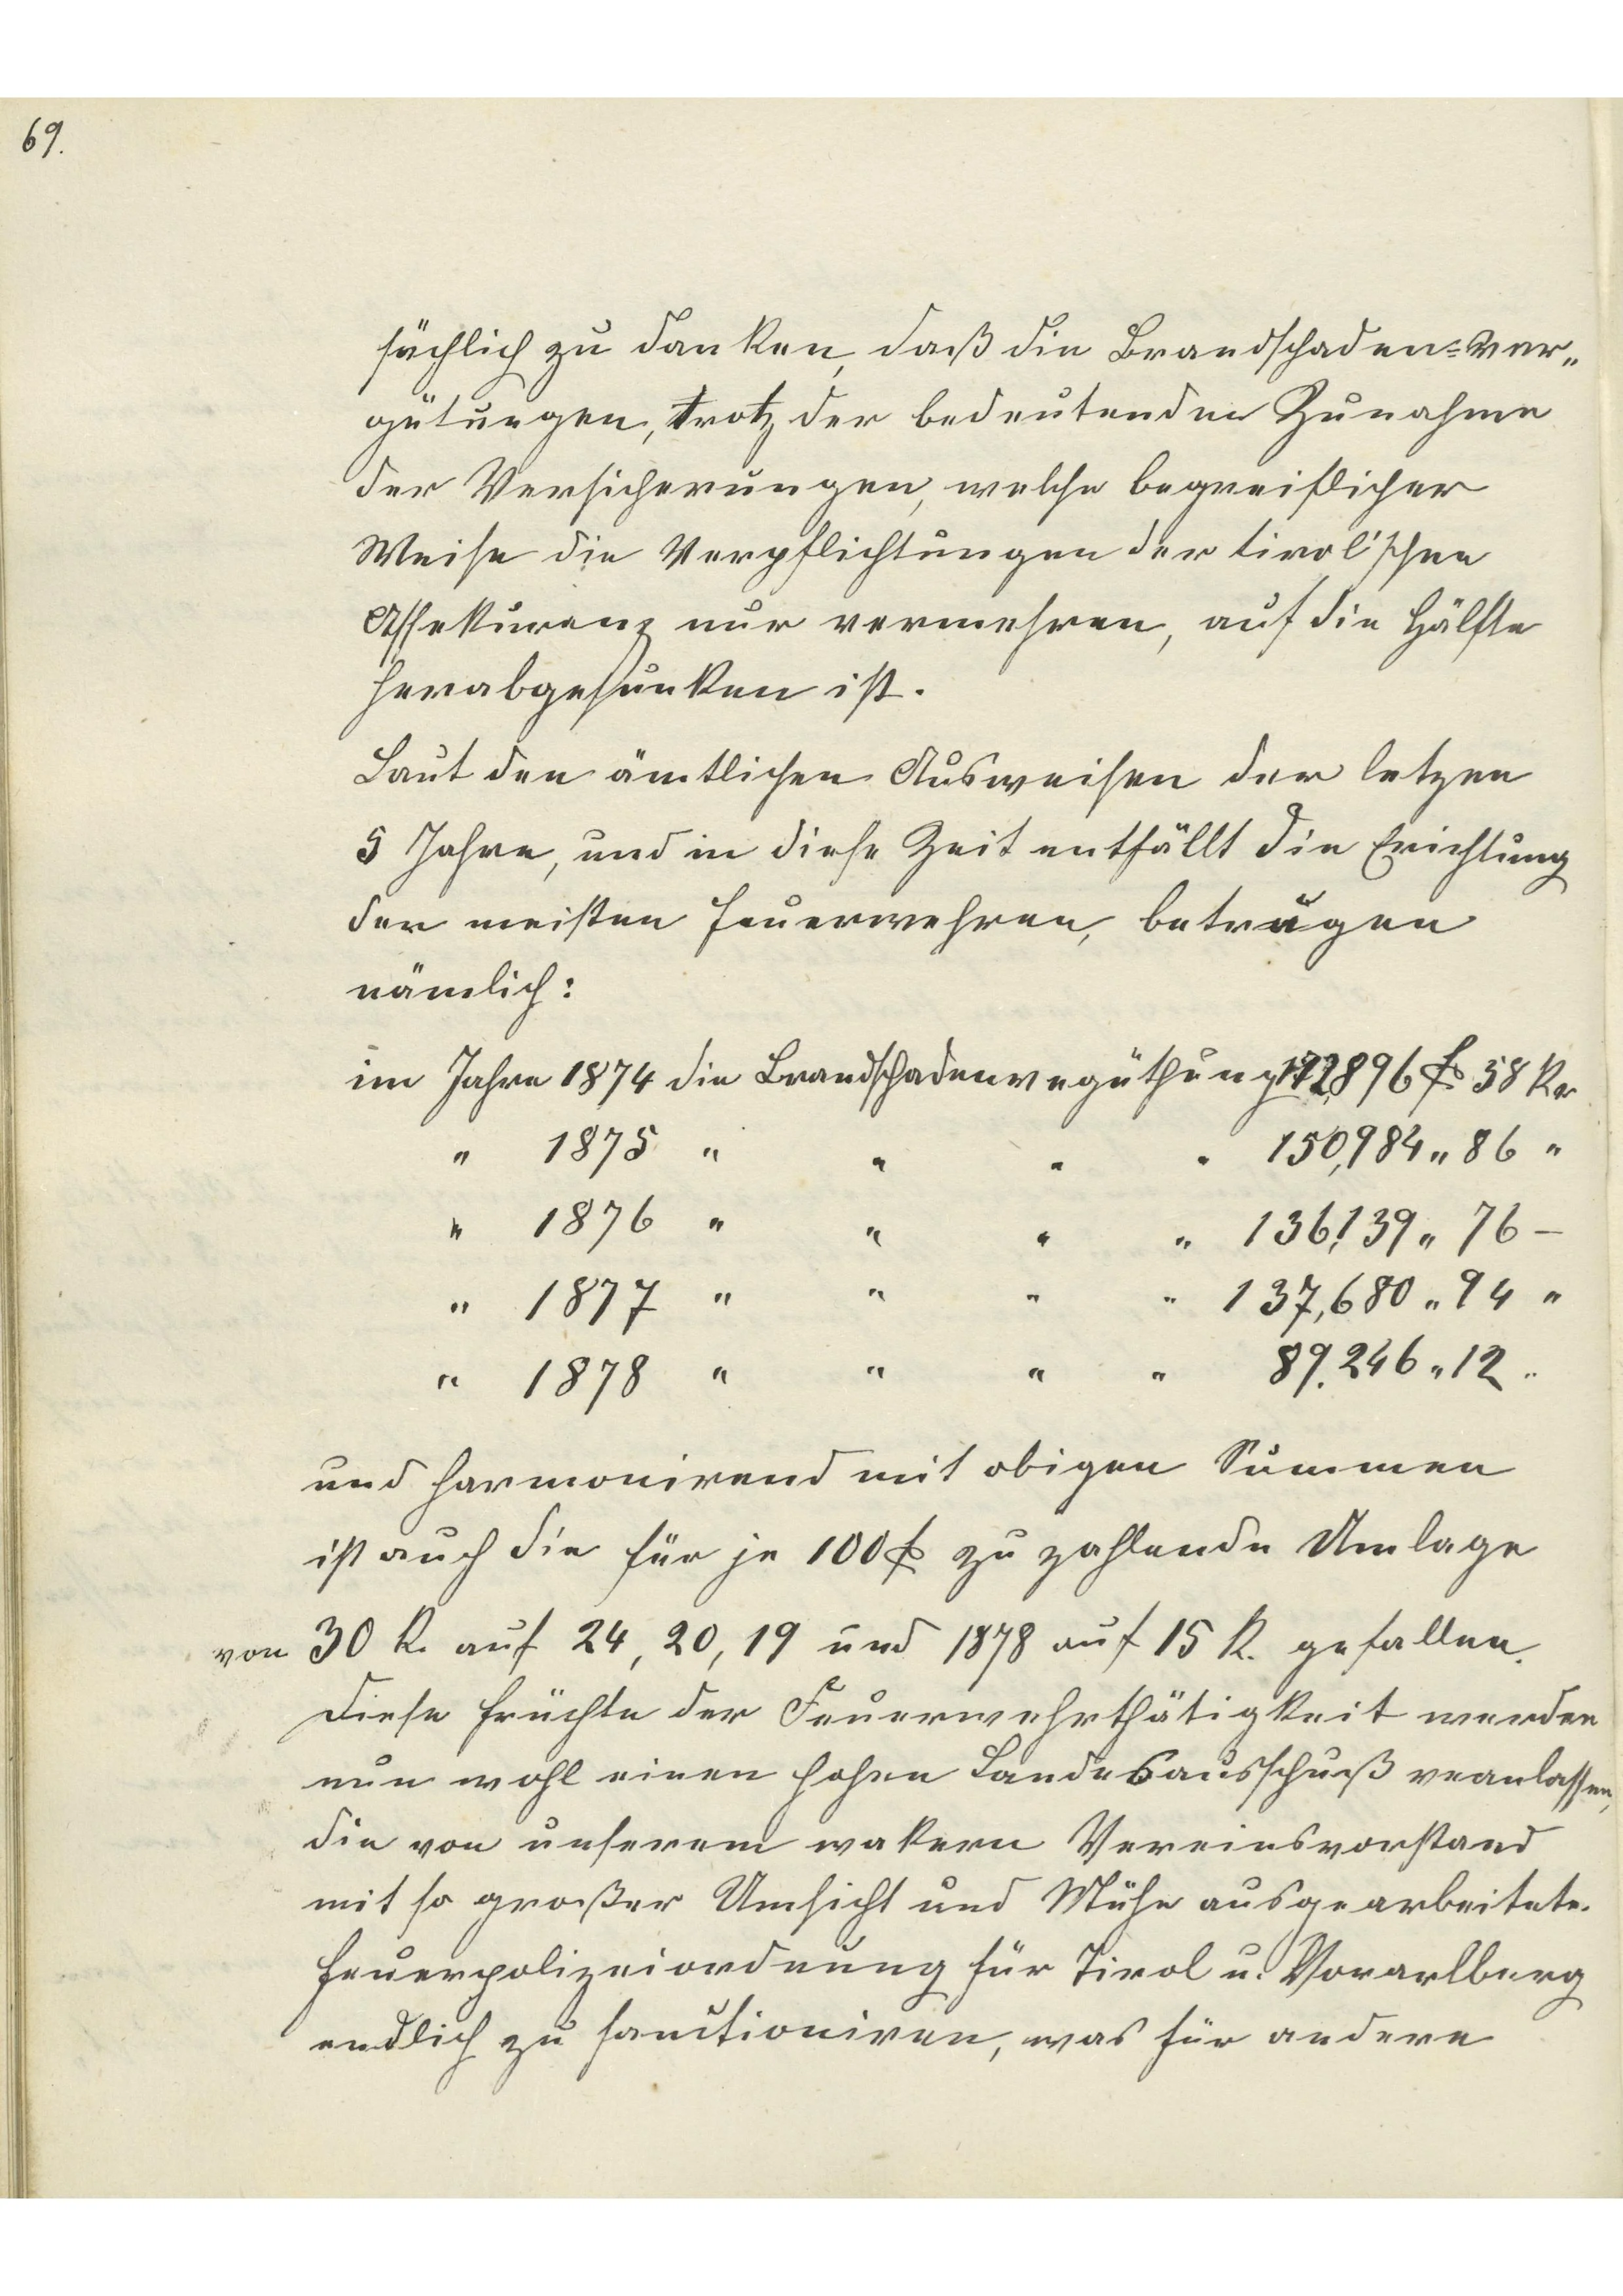 69.
sächlich zu danken, daß die Brandschaden=Ver„
gütungen, trotz der bedeutenden Zunahme
der Versicherungen, welche begreiflicher
Weise die Verpflichtungen der tirol'schen
Assekuranz nur vermehren, auf die Hälfte
herabgesunken ist.
Laut den ämtlichen Ausweisen der letzen
5 Jahre, und in diese Zeit entfällt die Erichtung
der meisten Feuerwehren, betrugen
nämlich:
im Jahre 1874 die Brandschadenvegüthung 172,896 f 58 Kr
" 1875 " " " " 150,984 " 86 "
" 1876 " " " " 136,139 " 76 –
" 1877 " " " " 137,680 " 94 "
" 1878 " " " " 89.246 " 12 "
und harmonirend mit obigen Summen
ist auch die für je 100 f zu zahlende Umlage
von 30 K. auf 24, 20, 19 und 1878 auf 15 K. gefallen.
Diese Früchte der Feuerwehrthätigkeit werden
nun wohl einen hohen Landesausschuß veanlassen,
die von unserem wakern Vereinsvorstand
mit so großer Umsicht und Mühe ausgearbeitete
Feuerpolizeiordnung für Tirol u. Vorarlberg
endlich zu sanctioniren, was für andere